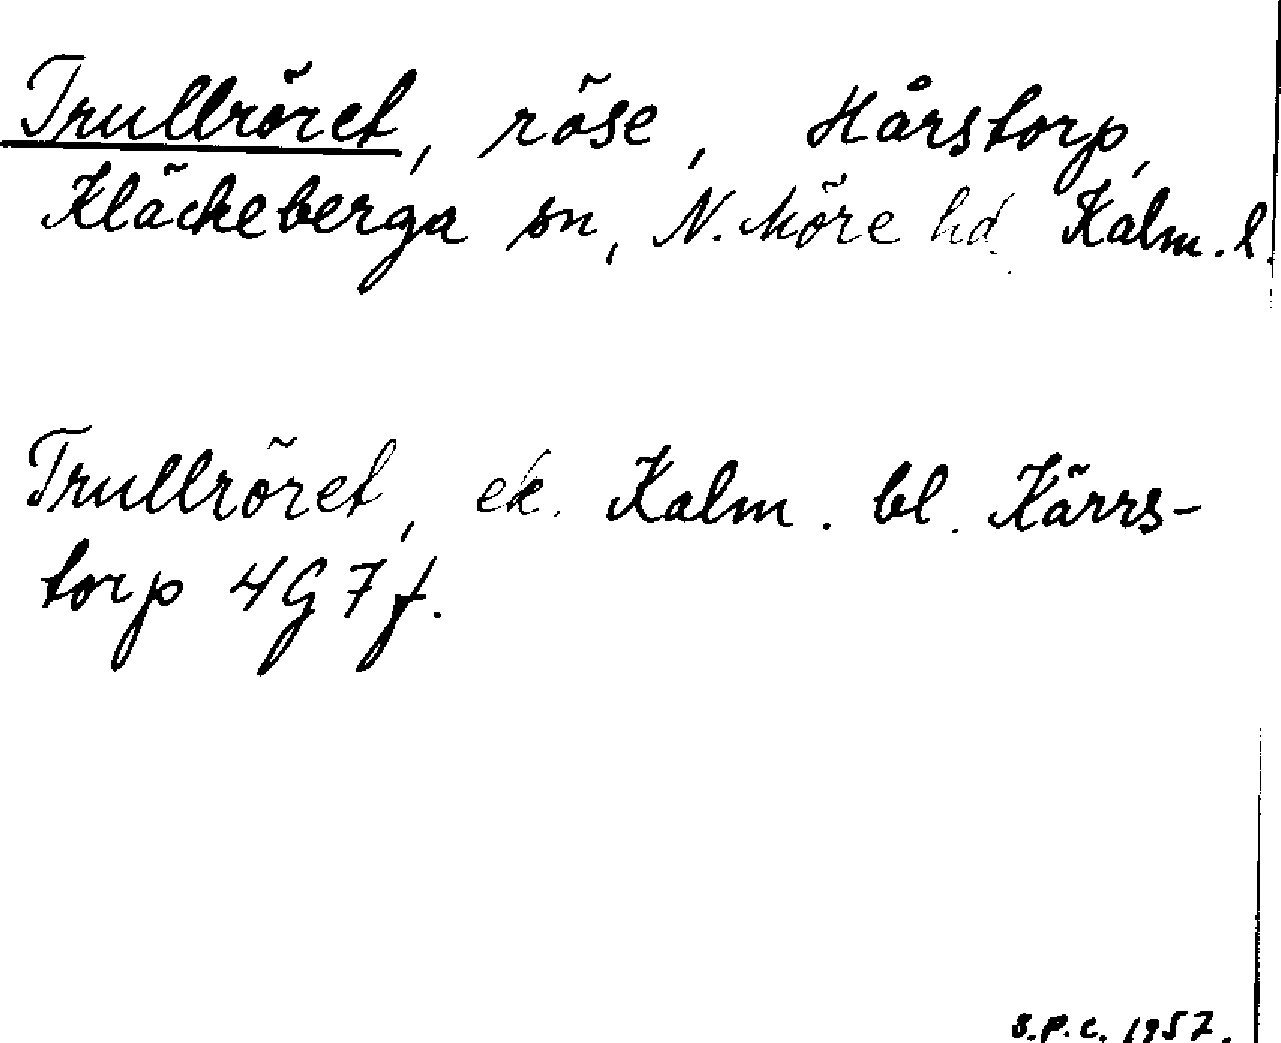 Trullröret, röse, Hårstorp,
Kläckeberga sn, N. Möre hd. Kalm. l.
Trullröret, ek. Kalm. bl. Kärrs-
torp 4G7f.
S.P.C. 1957.